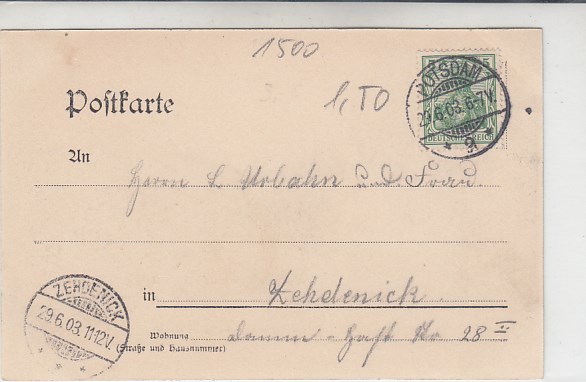 1500
Postkarte
1,50
POTSDAM
29.6.03. 6-7V.
* 9. *
DEUTSCHES REICH
5
An
Herrn L Urbahn und Frau.
in Zehdenick.
Wohnung
(Straße und Hausnummer)
Damm-Haft No 28 II
ZEHDENICK
29.6.03. 11-12V.
* * *